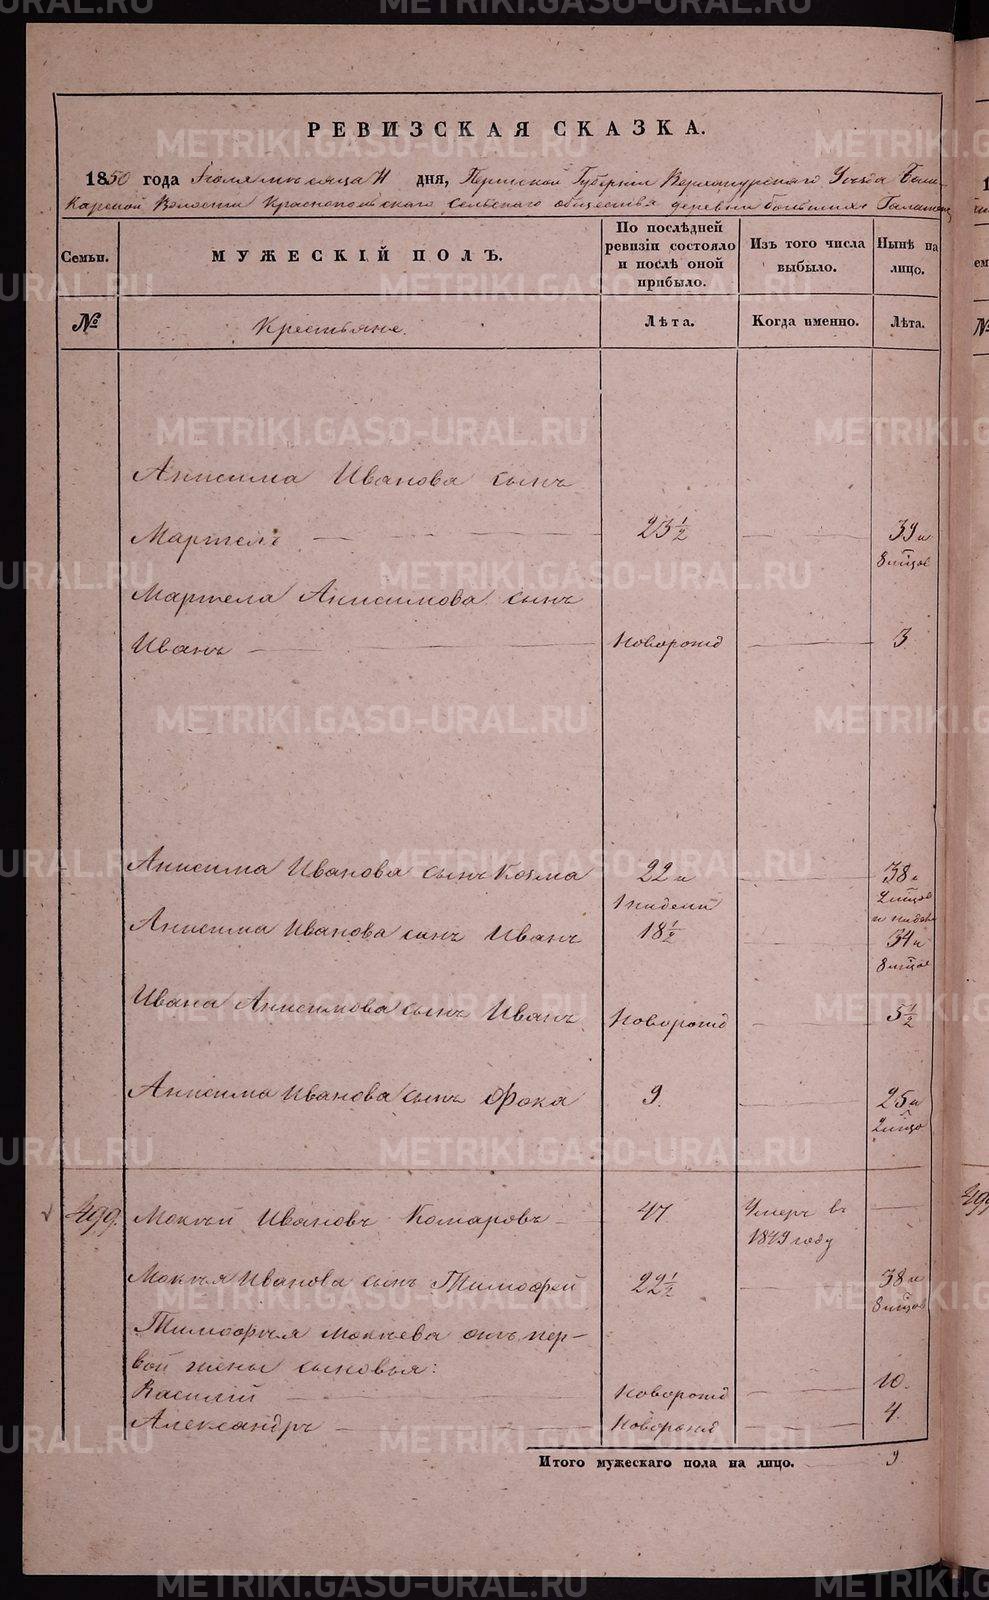 РЕВИЗСКАЯ СКАЗКА.
1850 года Іюля мѣсяца 11 дня, Пермской Губерніи Верхотурскаго Уѣзда Баш-
карской Волости Краснопольскаго сельскаго общества деревни большихъ
Семьи. МУЖЕСКІЙ ПОЛЪ. По послѣдней ревизіи состояло и послѣ оной прибыло. Изъ того числа выбыло. Нынѣ на лицо.
№ Крестьяне. Лѣта. Когда именно. Лѣта.
Анисима Иванова сынъ
Мартелъ 23 1/2 39 и
8 мѣцов
Мартела Анисимова сынъ
Иванъ Новорожд 3
Анисима Иванова сынъ Козма 22 и 38 и
1 недели
Анисима Иванова сынъ Иванъ 18 1/2 34 и
8 мѣцов
Ивана Анисимова сынъ Иванъ Новорожд 5 1/2
Анисима Иванова сынъ Фока 9. 25 и
2 мѣцо
499. Мокѣй Ивановъ Комаровъ 47 Умеръ въ
1849 году
Мокѣя Иванова сынъ Тимофей 22 1/2 38 и
8 мѣцов
Тимофѣя Мокѣева отъ пер-
вой жены сыновья:
Василій Новорожд 10.
Александръ Новорожд 4.
Итого мужескаго пола на лицо. 9
METRIKI.GASO-URAL.RU